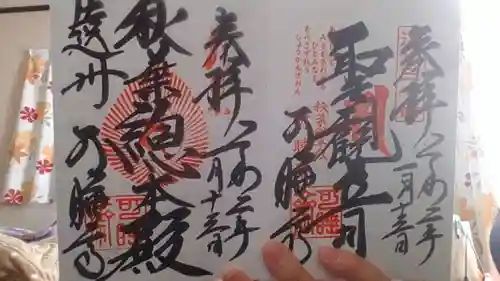 奉拝 令和二年
一月十三日
聖観世音
しょうかんぜおん
可睡斎
奉拝 令和二年
一月十三日
秋葉總本殿
遠州 可睡斎